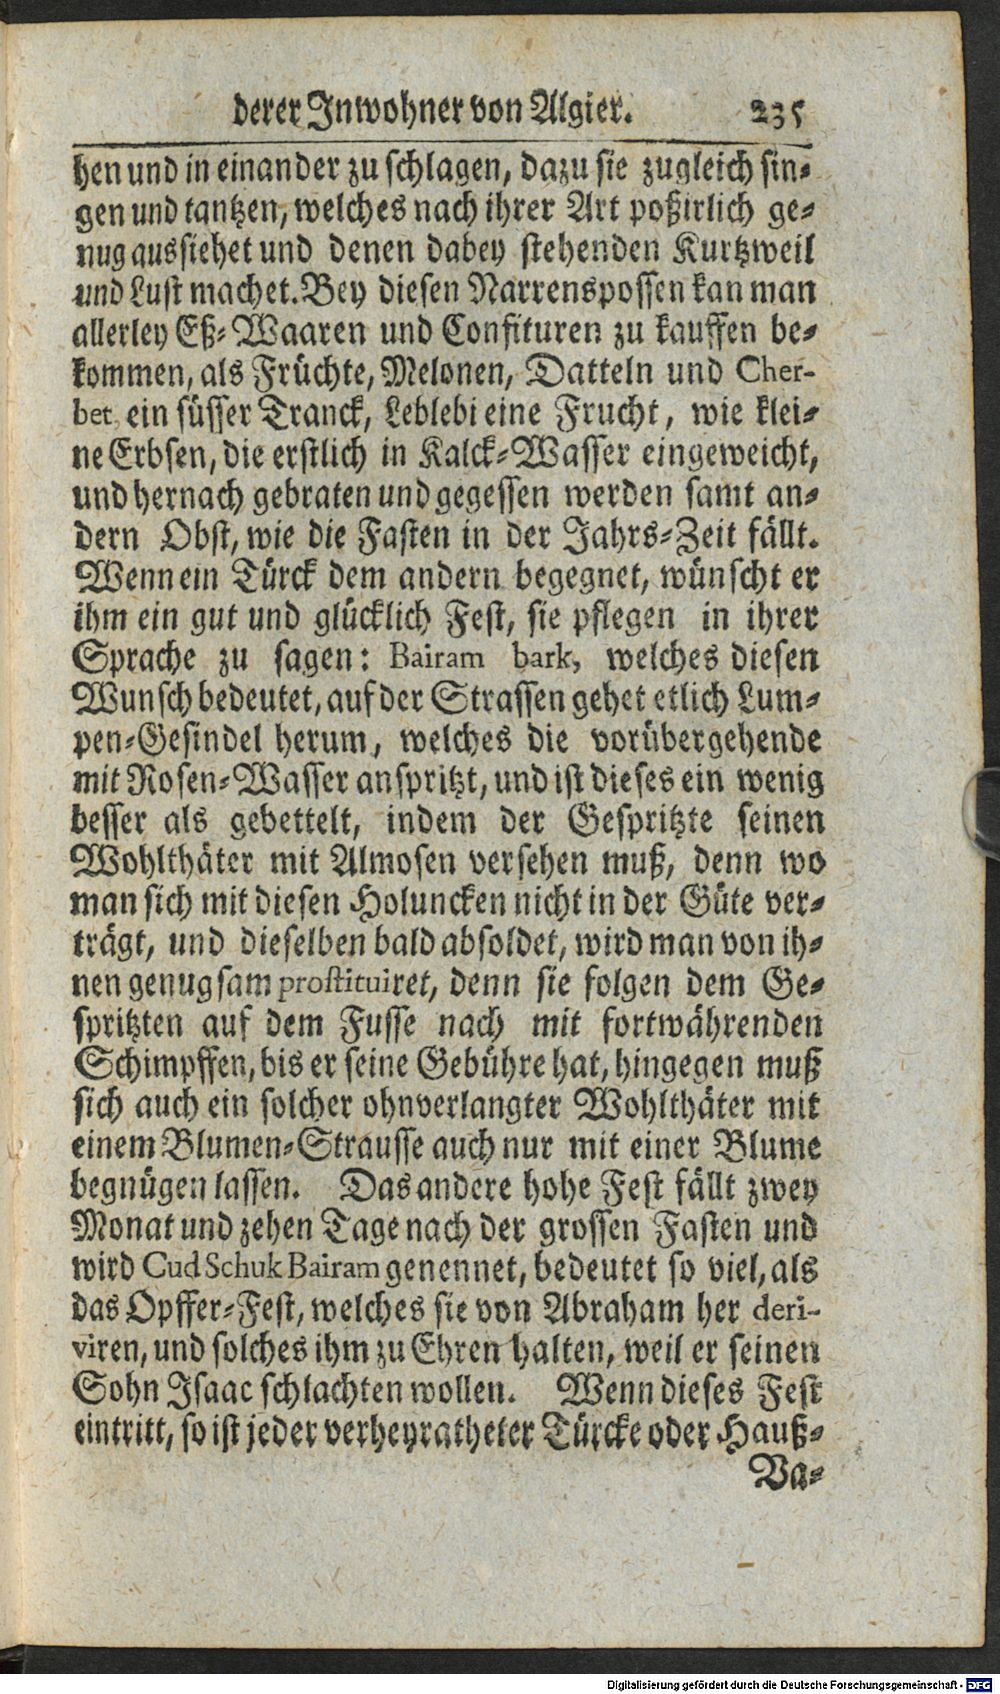 derer Inwohner von Algier. 235
hen und in einander zu schlagen, dazu sie zugleich sin-
gen und tantzen, welches nach ihrer Art poßirlich ge-
nug aussiehet und denen dabey stehenden Kurtzweil
und Lust machet. Bey diesen Narrenspossen kan man
allerley Eß-Waaren und Confituren zu kauffen be-
kommen, als Früchte, Melonen, Datteln und Cher-
bet, ein süsser Tranck, Leblebi eine Frucht, wie klei-
ne Erbsen, die erstlich in Kalck-Wasser eingeweicht,
und hernach gebraten und gegessen werden samt an-
dern Obst, wie die Fasten in der Jahrs-Zeit fällt.
Wenn ein Türck dem andern begegnet, wünscht er
ihm ein gut und glücklich Fest, sie pflegen in ihrer
Sprache zu sagen: Bairam bark, welches diesen
Wunsch bedeutet, auf der Strassen gehet etlich Lum-
pen-Gesindel herum, welches die vorübergehende
mit Rosen-Wasser anspritzt, und ist dieses ein wenig
besser als gebettelt, indem der Gespritzte seinen
Wohlthäter mit Almosen versehen muß, denn wo
man sich mit diesen Holuncken nicht in der Güte ver-
trägt, und dieselben bald absoldet, wird man von ih-
nen genugsam prostituiret, denn sie folgen dem Ge-
spritzten auf dem Fusse nach mit fortwährenden
Schimpffen, bis er seine Gebühre hat, hingegen muß
sich auch ein solcher ohnverlangter Wohlthäter mit
einem Blumen-Strausse auch nur mit einer Blume
begnügen lassen. Das andere hohe Fest fällt zwey
Monat und zehen Tage nach der grossen Fasten und
wird Cud Schuk Bairam genennet, bedeutet so viel, als
das Opffer-Fest, welches sie von Abraham her deri-
viren, und solches ihm zu Ehren halten, weil er seinen
Sohn Isaac schlachten wollen. Wenn dieses Fest
eintritt, so ist jeder verheyratheter Türcke oder Hauß-
Va-
Digitalisierung gefördert durch die Deutsche Forschungsgemeinschaft - DFG